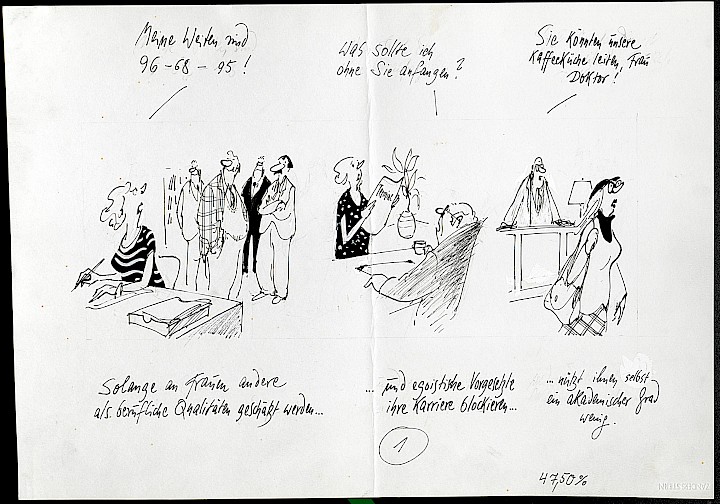 Meine Weiten sind
96-68-95!
Was sollte ich
ohne Sie anfangen?
Sie könnten unsere
Kaffeeküche leiten, Frau
Doktor!
Solange an Frauen andere
als berufliche Qualitäten geschätzt werden...
... und egoistische Vorgesetzte
ihre Karriere blockieren...
... nützt ihnen selbst
ein akademischer Grad
wenig.
1
47,50%